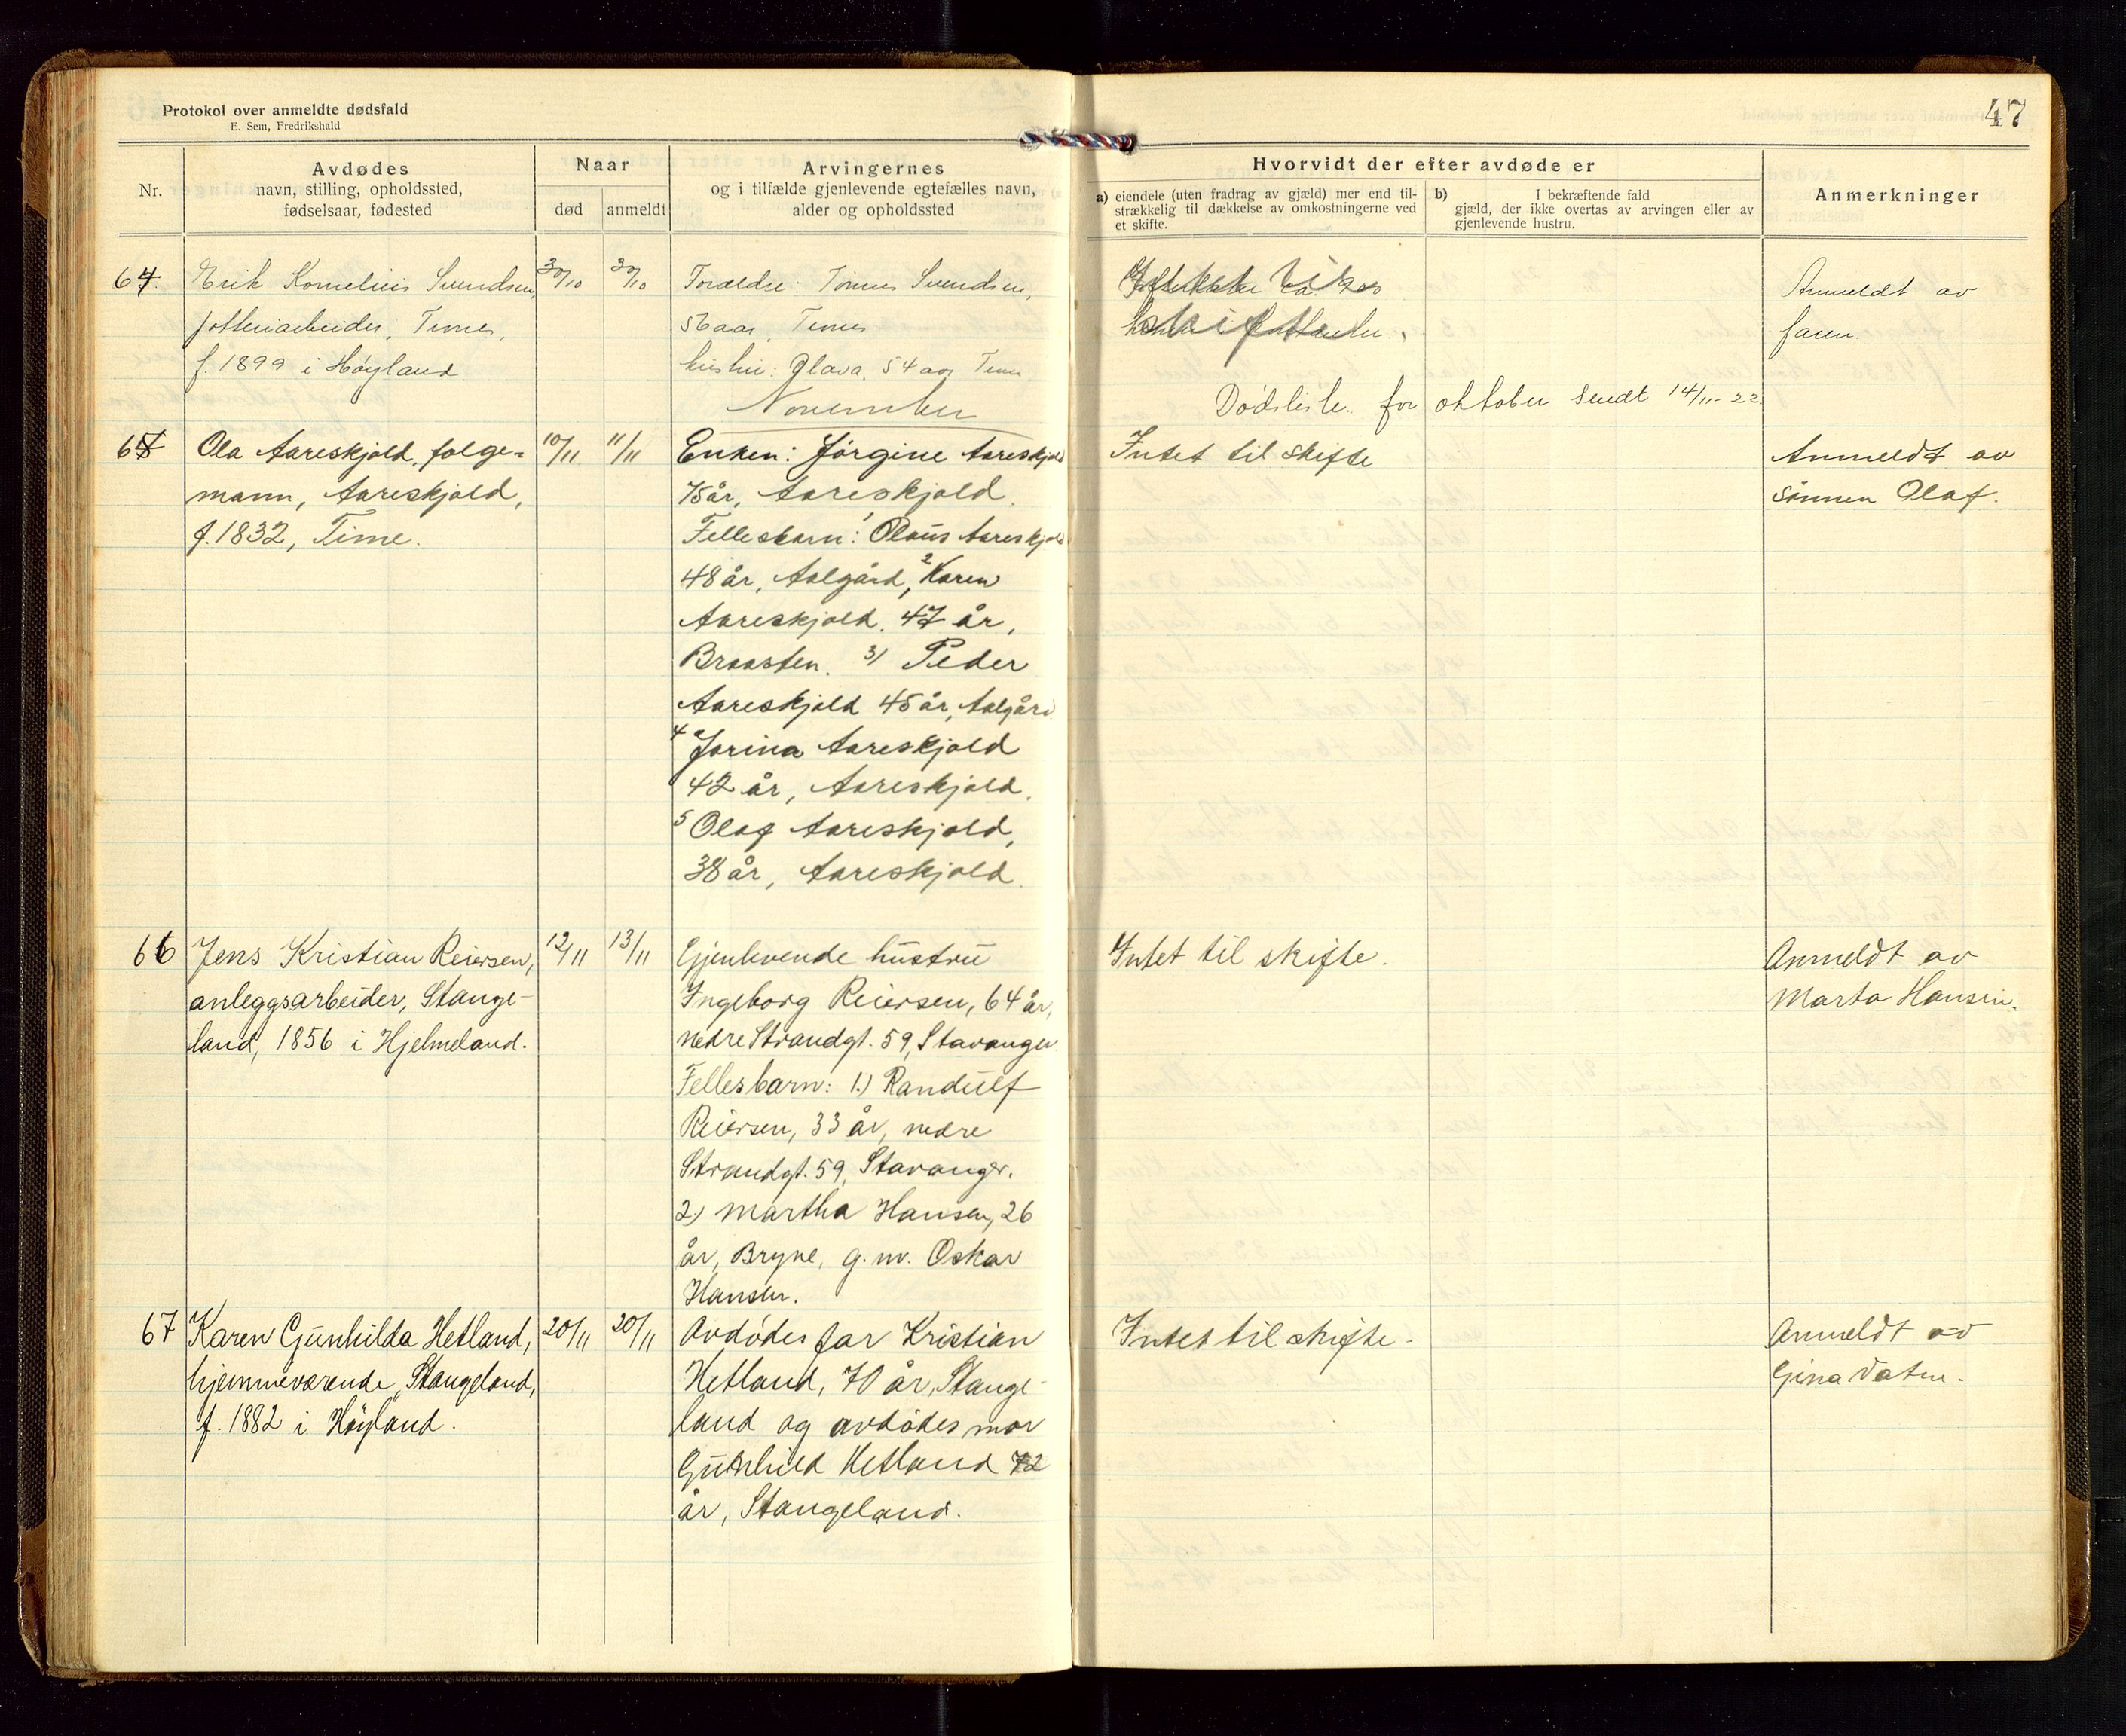 Protokol over anmeldte dødsfald
E. Sem, Fredrikshald
47
Nr.
Avdødes
navn, stilling, opholdssted,
fødselsaar, fødested
Naar
død
anmeldt
Arvingernes
og i tilfælde gjenlevende egtefælles navn,
alder og opholdssted
Hvorvidt der efter avdøde er
a) eiendele (uten fradrag av gjæld) mer end til-
strækkelig til dækkelse av omkostningerne ved
et skifte.
b) I bekræftende fald
gjæld, der ikke overtas av arvingen eller av
gjenlevende hustru.
Anmerkninger
64.
Erik Kornelius Svendsen,
potteriarbeider, Time,
f. 1899 i Høyland
30/10
30/10
Forældre: Tønnes Svendsen,
56 aar, Time
hustru: Olava, 54 aar, Time
skifte
Anmeldt av
faren.
November
Dødsliste for oktober sendt 14/11-22
65
Ola Aareskjold, folge=
mann, Aareskjold,
f. 1832, Time.
10/11
11/11
Enken: Jørgine Aareskjold
75 år, Aareskjold.
Fellesbarn: 1 Olaus Aareskjold
48 år, Aalgård, 2 Karen
Aareskjold, 47 år,
Braasten. 3) Peder
Aareskjold 45 år, Aalgård
4 Jorina Aareskjold
42 år, Aareskjold.
5 Olaf Aareskjold,
38 år, Aareskjold.
Intet til skifte
Anmeldt av
sønnen Olaf.
66
Jens Kristian Reiersen,
anleggsarbeider, Stange-
land, 1856 i Hjelmeland.
12/11
13/11
Gjenlevende hustru
Ingeborg Reiersen, 64 år,
nedre Strandgt. 59, Stavanger
Fellesbarn: 1.) Randulf
Reiersen, 33 år, nedre
Strandgt. 59, Stavanger.
2.) Martha Hansen, 26
år, Bryne, g. m. Oskar
Hansen.
Intet til skifte.
Anmeldt av
Marta Hansen.
67
Karen Gunhilda Hetland,
hjemmeværende, Stangeland,
f. 1882 i Høyland.
20/11
20/11
Avdødes far Kristian
Hetland, 70 år, Stange-
land og avdødes mor
Gunhild Hetland 72
år, Stangeland.
Intet til skifte.
Anmeldt av
Gina Vatne.